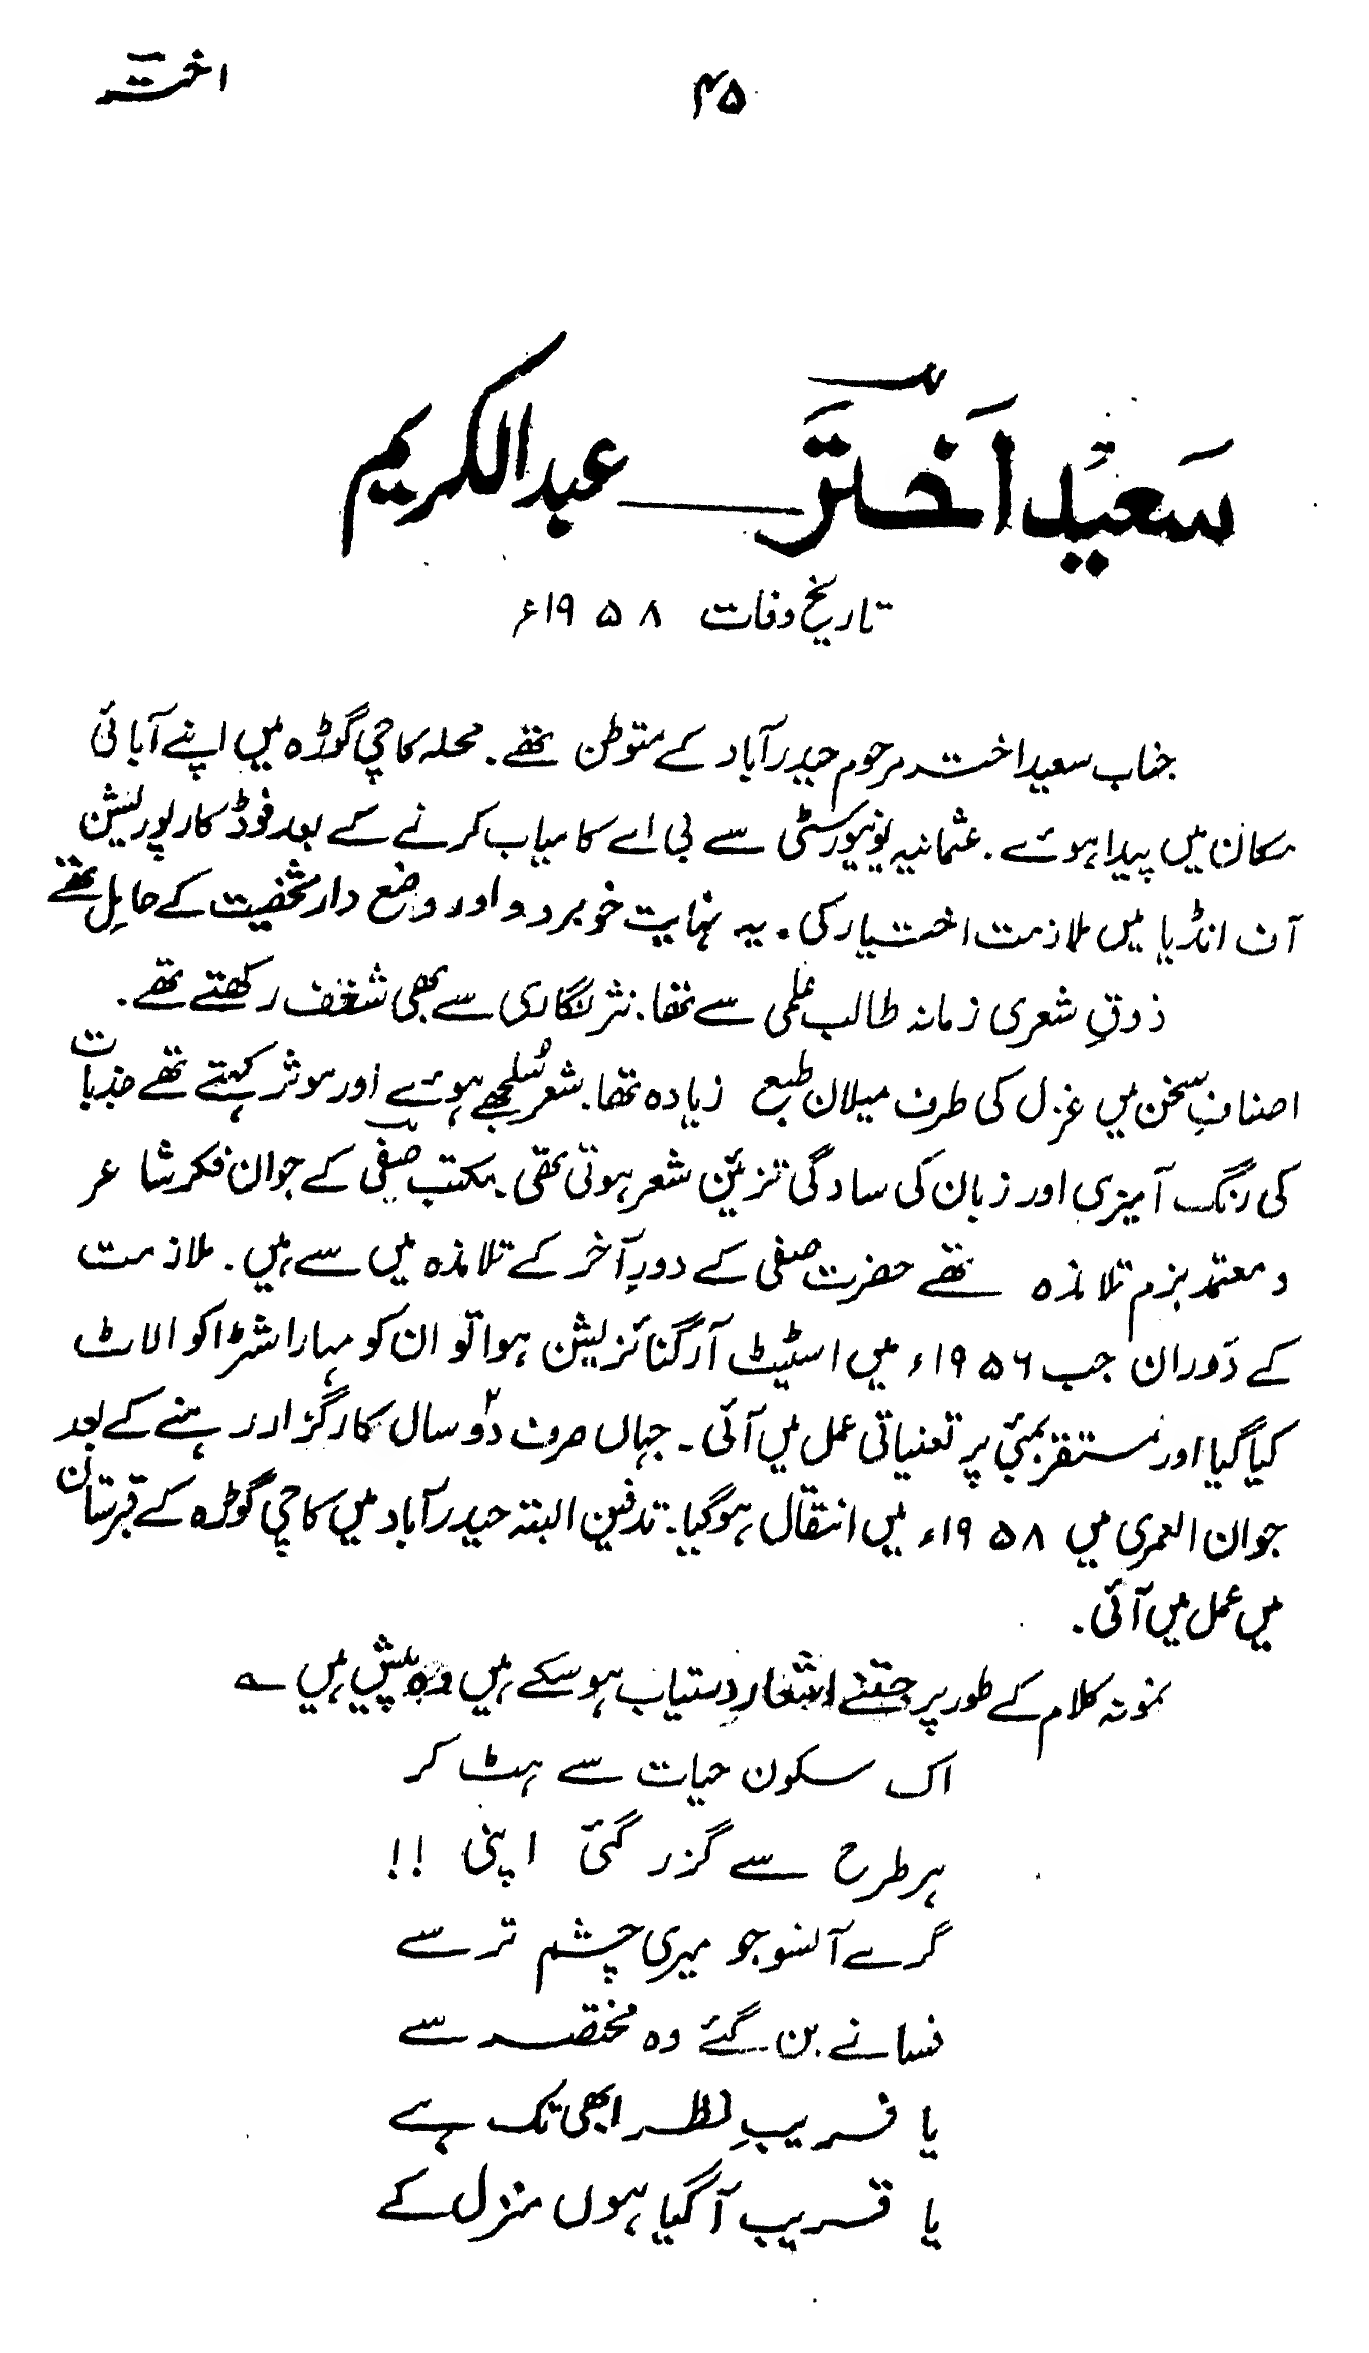 ۴۵
اختر
سعید اختر ـــ عبدالکریم
تاریخ وفات ۱۹۵۸ء
جناب سعید اختر مرحوم حیدرآباد کے متوطن تھے۔ محلہ کاچی گوڑہ میں اپنے آبائی
مکان میں پیدا ہوئے۔ عثمانیہ یونیورسٹی سے بی اے کامیاب کرنے کے بعد فوڈ کارپوریشن
آف انڈیا میں ملازمت اختیار کی۔ یہ نہایت خوبرو اور وضع دار شخصیت کے حامِل تھے
ذوقِ شعری زمانہ طالب علمی سے تھا۔ نثر نگاری سے بھی شغف رکھتے تھے۔
اصنافِ سخن میں غزل کی طرف میلان طبع زیادہ تھا۔ شعر سُلجھے ہوئے اور موثر کہتے تھے جذبات
کی رنگ آمیزی اور زبان کی سادگی تزئین شعر ہوتی تھی۔ مکتب صفی کے جوان فکر شاعر
و معتمد بزم تلامذہ تھے حضرت صفی کے دورِ آخر کے تلامذہ میں سے ہیں۔ ملازمت
کے دَوران جب ۱۹۵۶ء میں اسٹیٹ آرگنائزیشن ہوا تو ان کو مہاراشٹرا کو الاٹ
کیا گیا اور مستقر بمبئی پر تعنیاتی عمل میں آئی۔ جہاں صرف دو۲ سال کارگزار رہنے کے بعد
جوان العمری میں ۱۹۵۸ء میں انتقال ہوگیا۔ تدفین البتہ حیدرآباد میں کاچی گوڑہ کے قبرستان
میں عمل میں آئی۔
نمونہ کلام کے طور پر جتنے اشعار دستیاب ہوسکے ہیں وہ پیش ہیں ؎
اک سکون حیات سے ہٹ کر
ہر طرح سے گزر گئی اپنی !!
گرے آنسو جو میری چشم تر سے
فسانے بن گئے وہ مختصر سے
یا فریبِ نظر ابھی تک ہے
یا قریب آگیا ہوں منزل کے